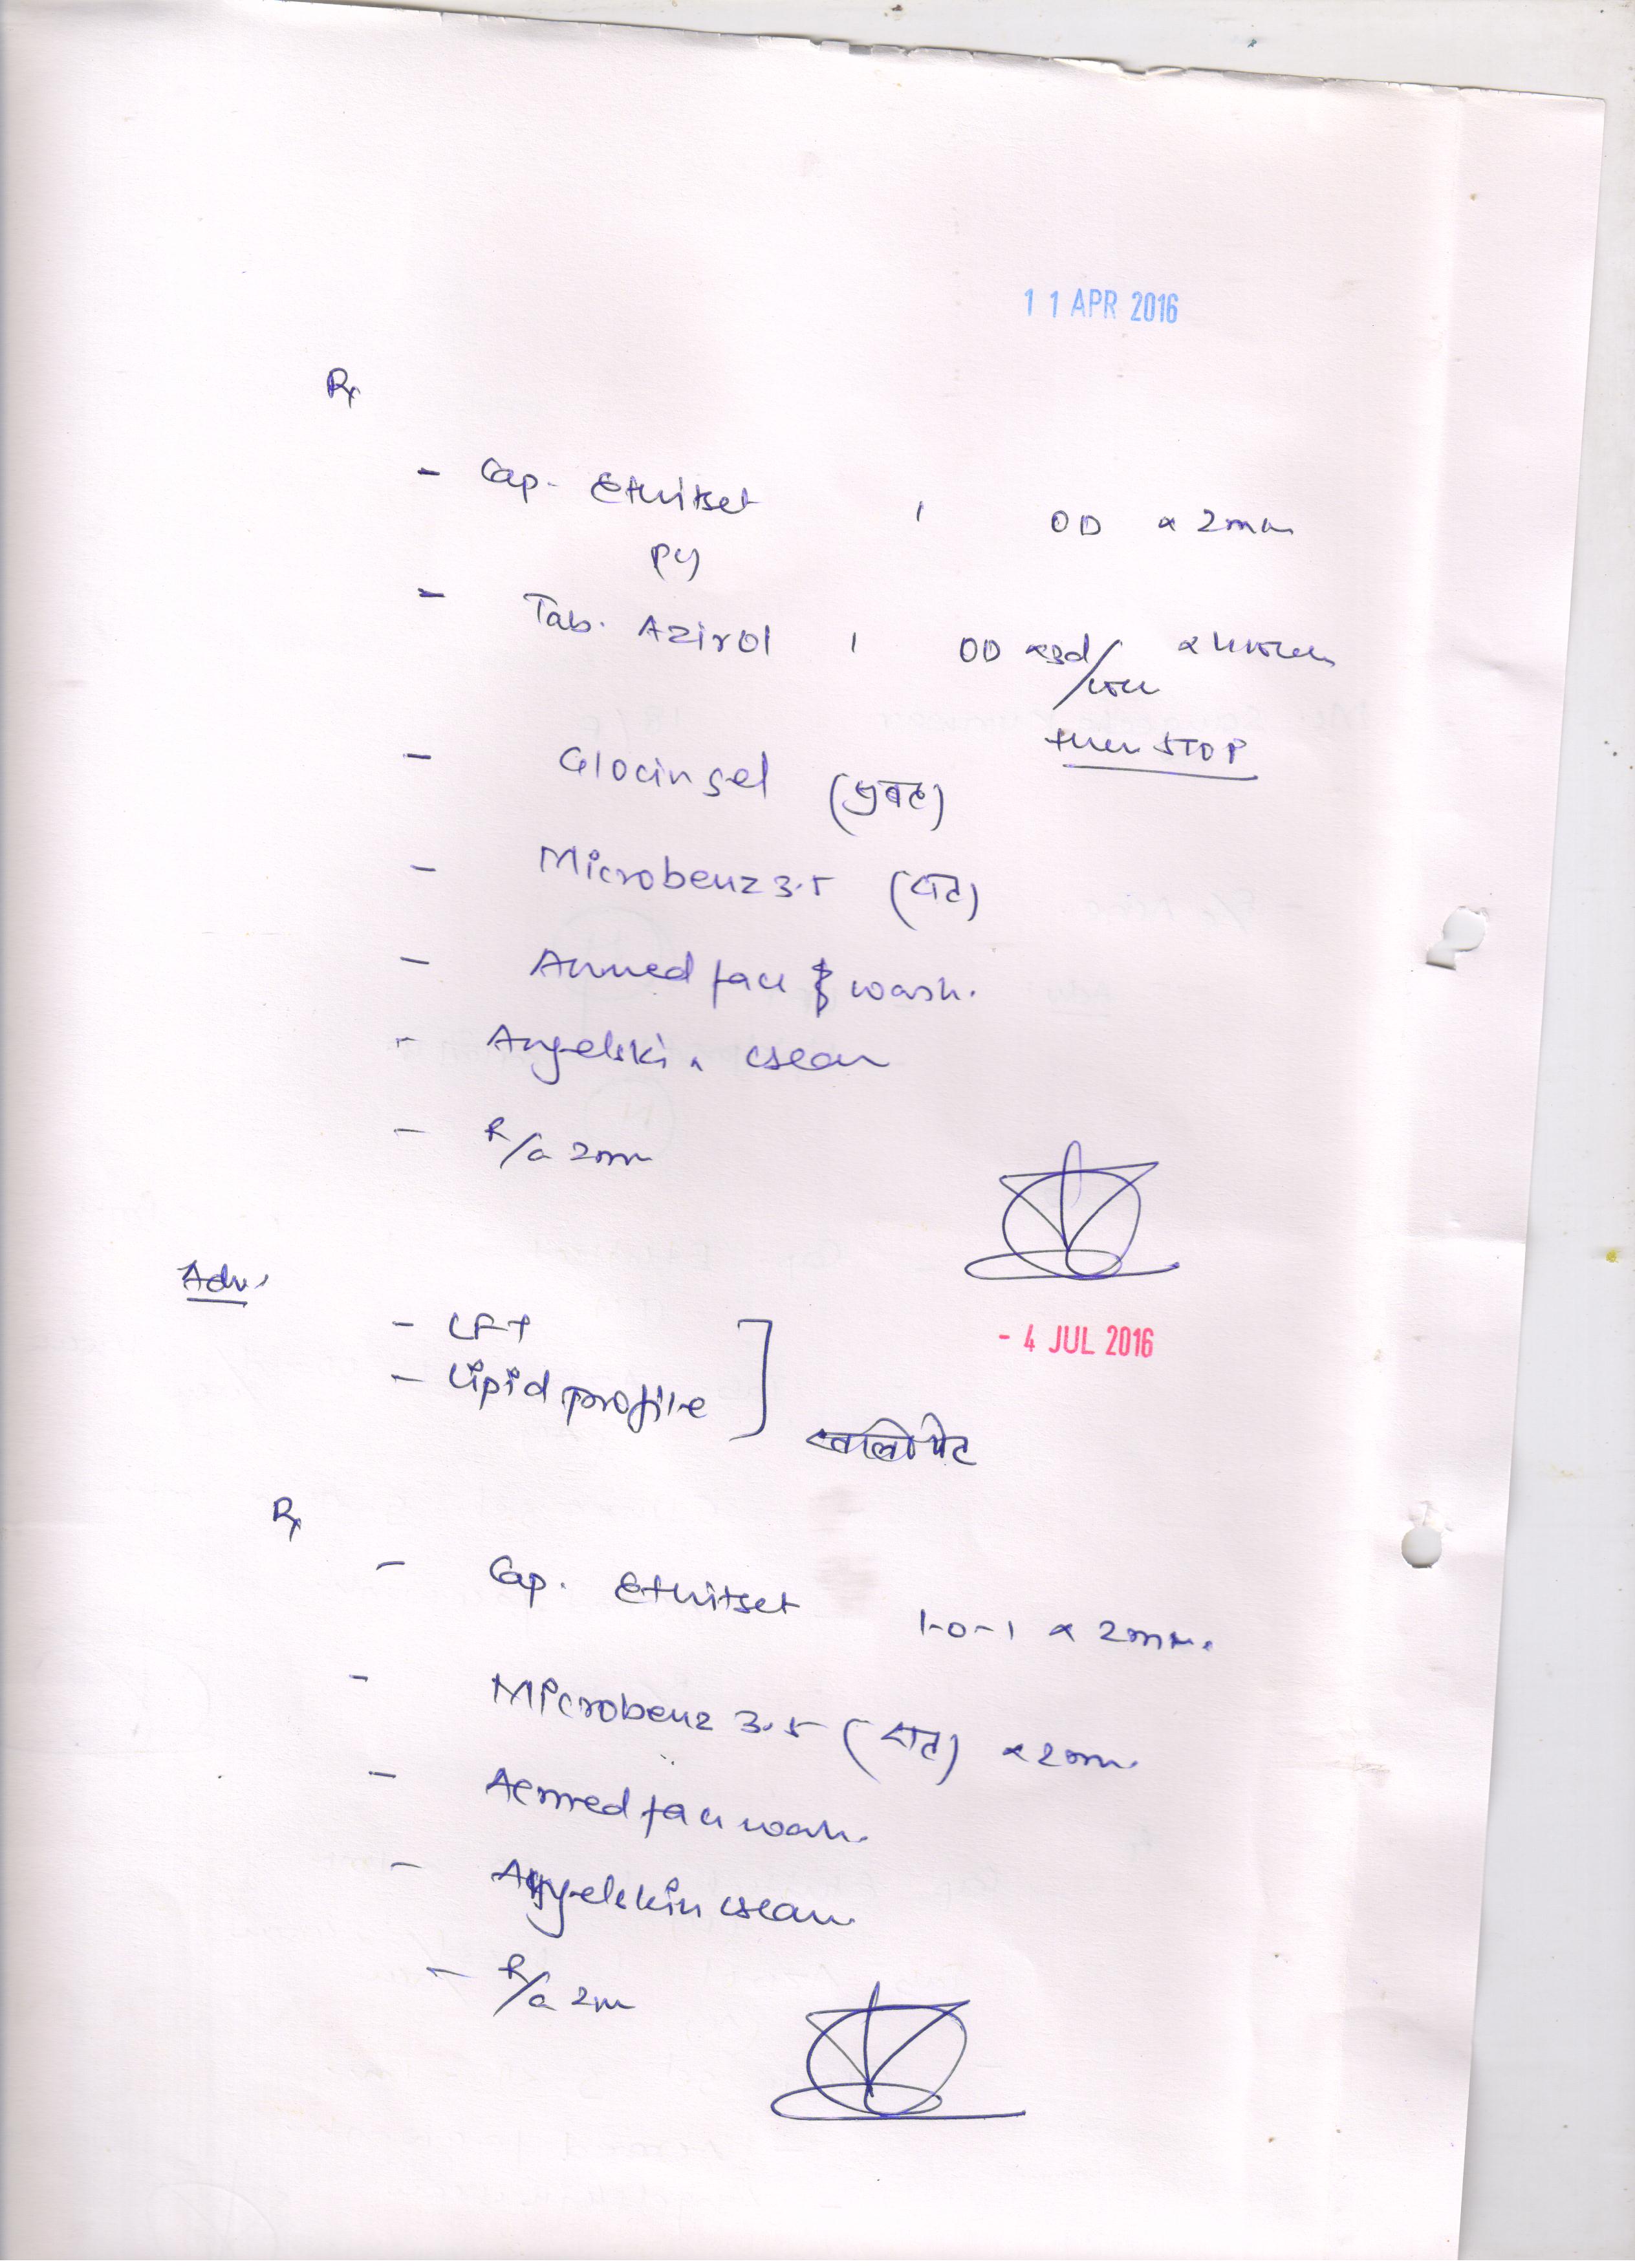 11 APR 2016
Rx
- Cap. Ethitset 1 OD x 2m
- Tab. Azirol 1 OD x3d/ x 4
then STOP
- Glocin gel (सुबह)
- Microbenz 3.5 (रात)
- Acnmed face wash.
- Angelskin
- R/a 2m
Adv.
- LFT
- Lipid profile ]
- 4 JUL 2016
खाली पेट
Rx
- Cap. Ethitset 1-0-1 x 2m
- Microbenz 3.5 (रात) x 2m
- Acnmed face wash.
- Angelskin
- R/a 2m